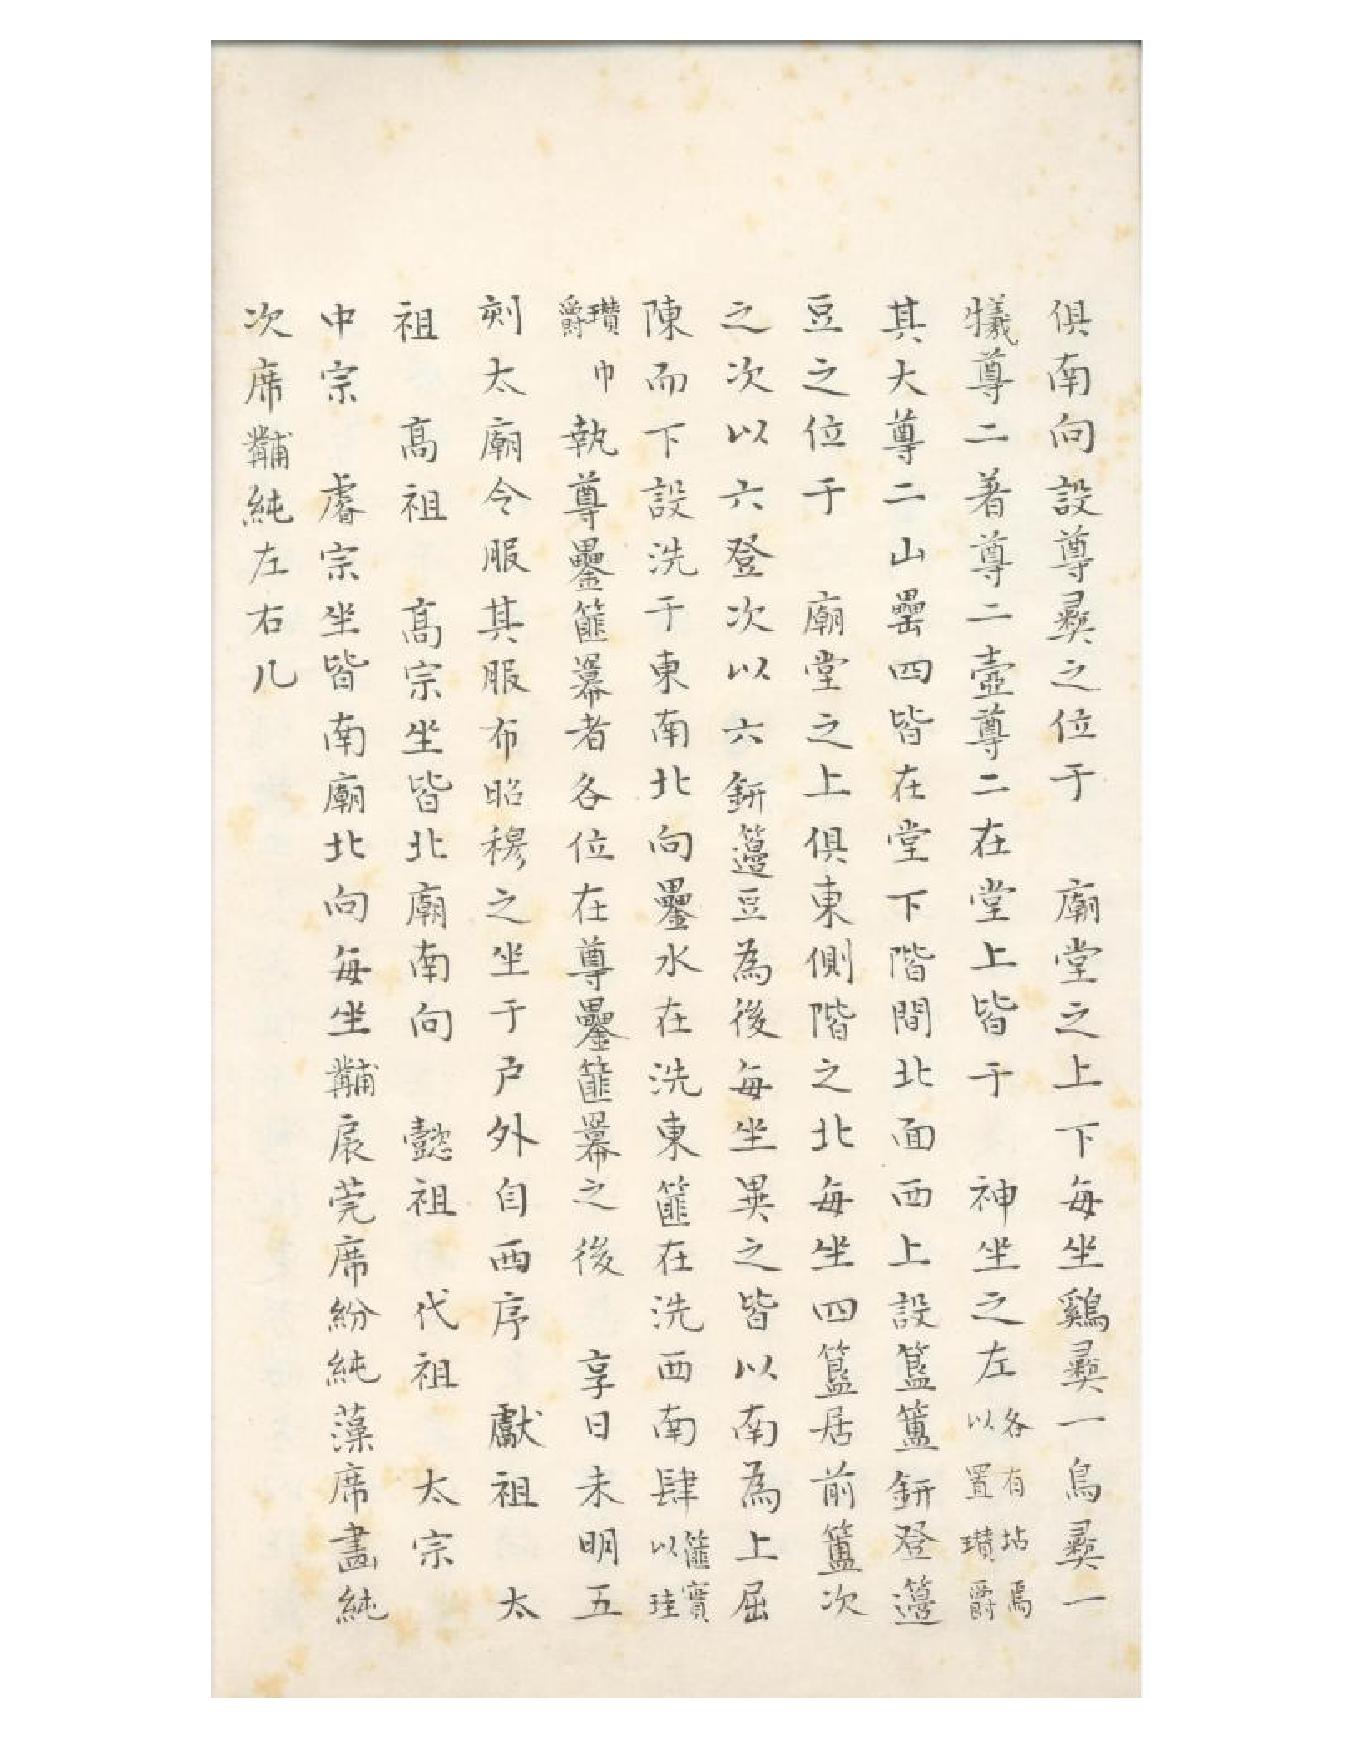 俱南向設尊彞之位于　廟堂之上下每坐鷄彞一鳥彞一
犧尊二著尊二壺尊二在堂上皆于　神坐之左各有坫焉以置瓚爵
其大尊二山罍四皆在堂下階間北面西上設簋簠鈃登籩
豆之位于　廟堂之上俱東側階之北每坐四簋居前簠次
之次以六登次以六鈃籩豆為後每坐異之皆以南為上屈
陳而下設洗于東南北向罍水在洗東篚在洗西南肆篚實以珪
瓚爵巾執尊罍篚冪者各位在尊罍篚冪之後　享日未明五
刻太廟令服其服布昭穆之坐于户外自西序　獻祖　太
祖　高祖　高宗坐皆北廟南向　懿祖　代祖　太宗
中宗　睿宗坐皆南廟北向每坐黼扆莞席紛純藻席畫純
次席黼純左右几